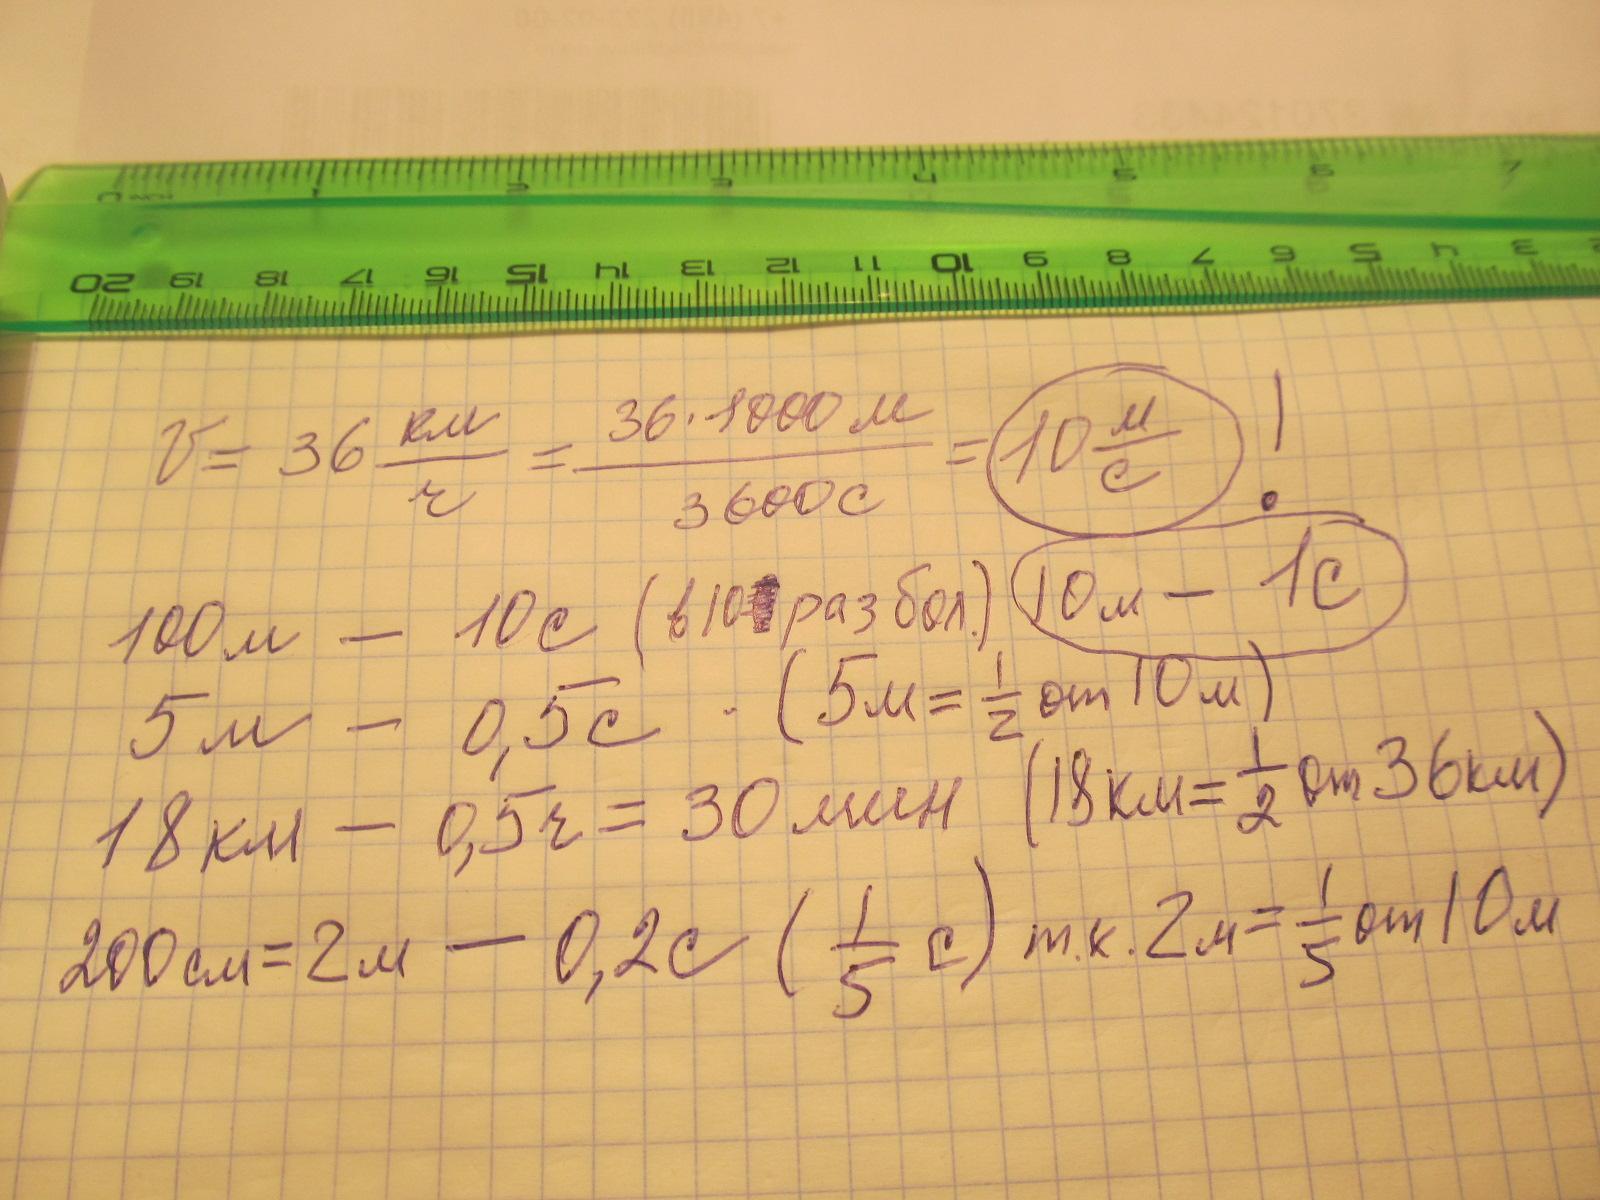 0 1 2 3 4 5 6 7
20 19 18 17 16 15 14 13 12 11 10 9 8 7 6 5 4 3 2
V = 36 км/ч = 36·1000 м/3600 с = 10 м/с !
100 м — 10 с (в 10 раз бол.) 10 м — 1 с
5 м — 0,5 с (5 м = 1/2 от 10 м)
18 км — 0,5 ч = 30 мин (18 км = 1/2 от 36 км)
200 см = 2 м — 0,2 с (1/5 с) т.к. 2 м = 1/5 от 10 м